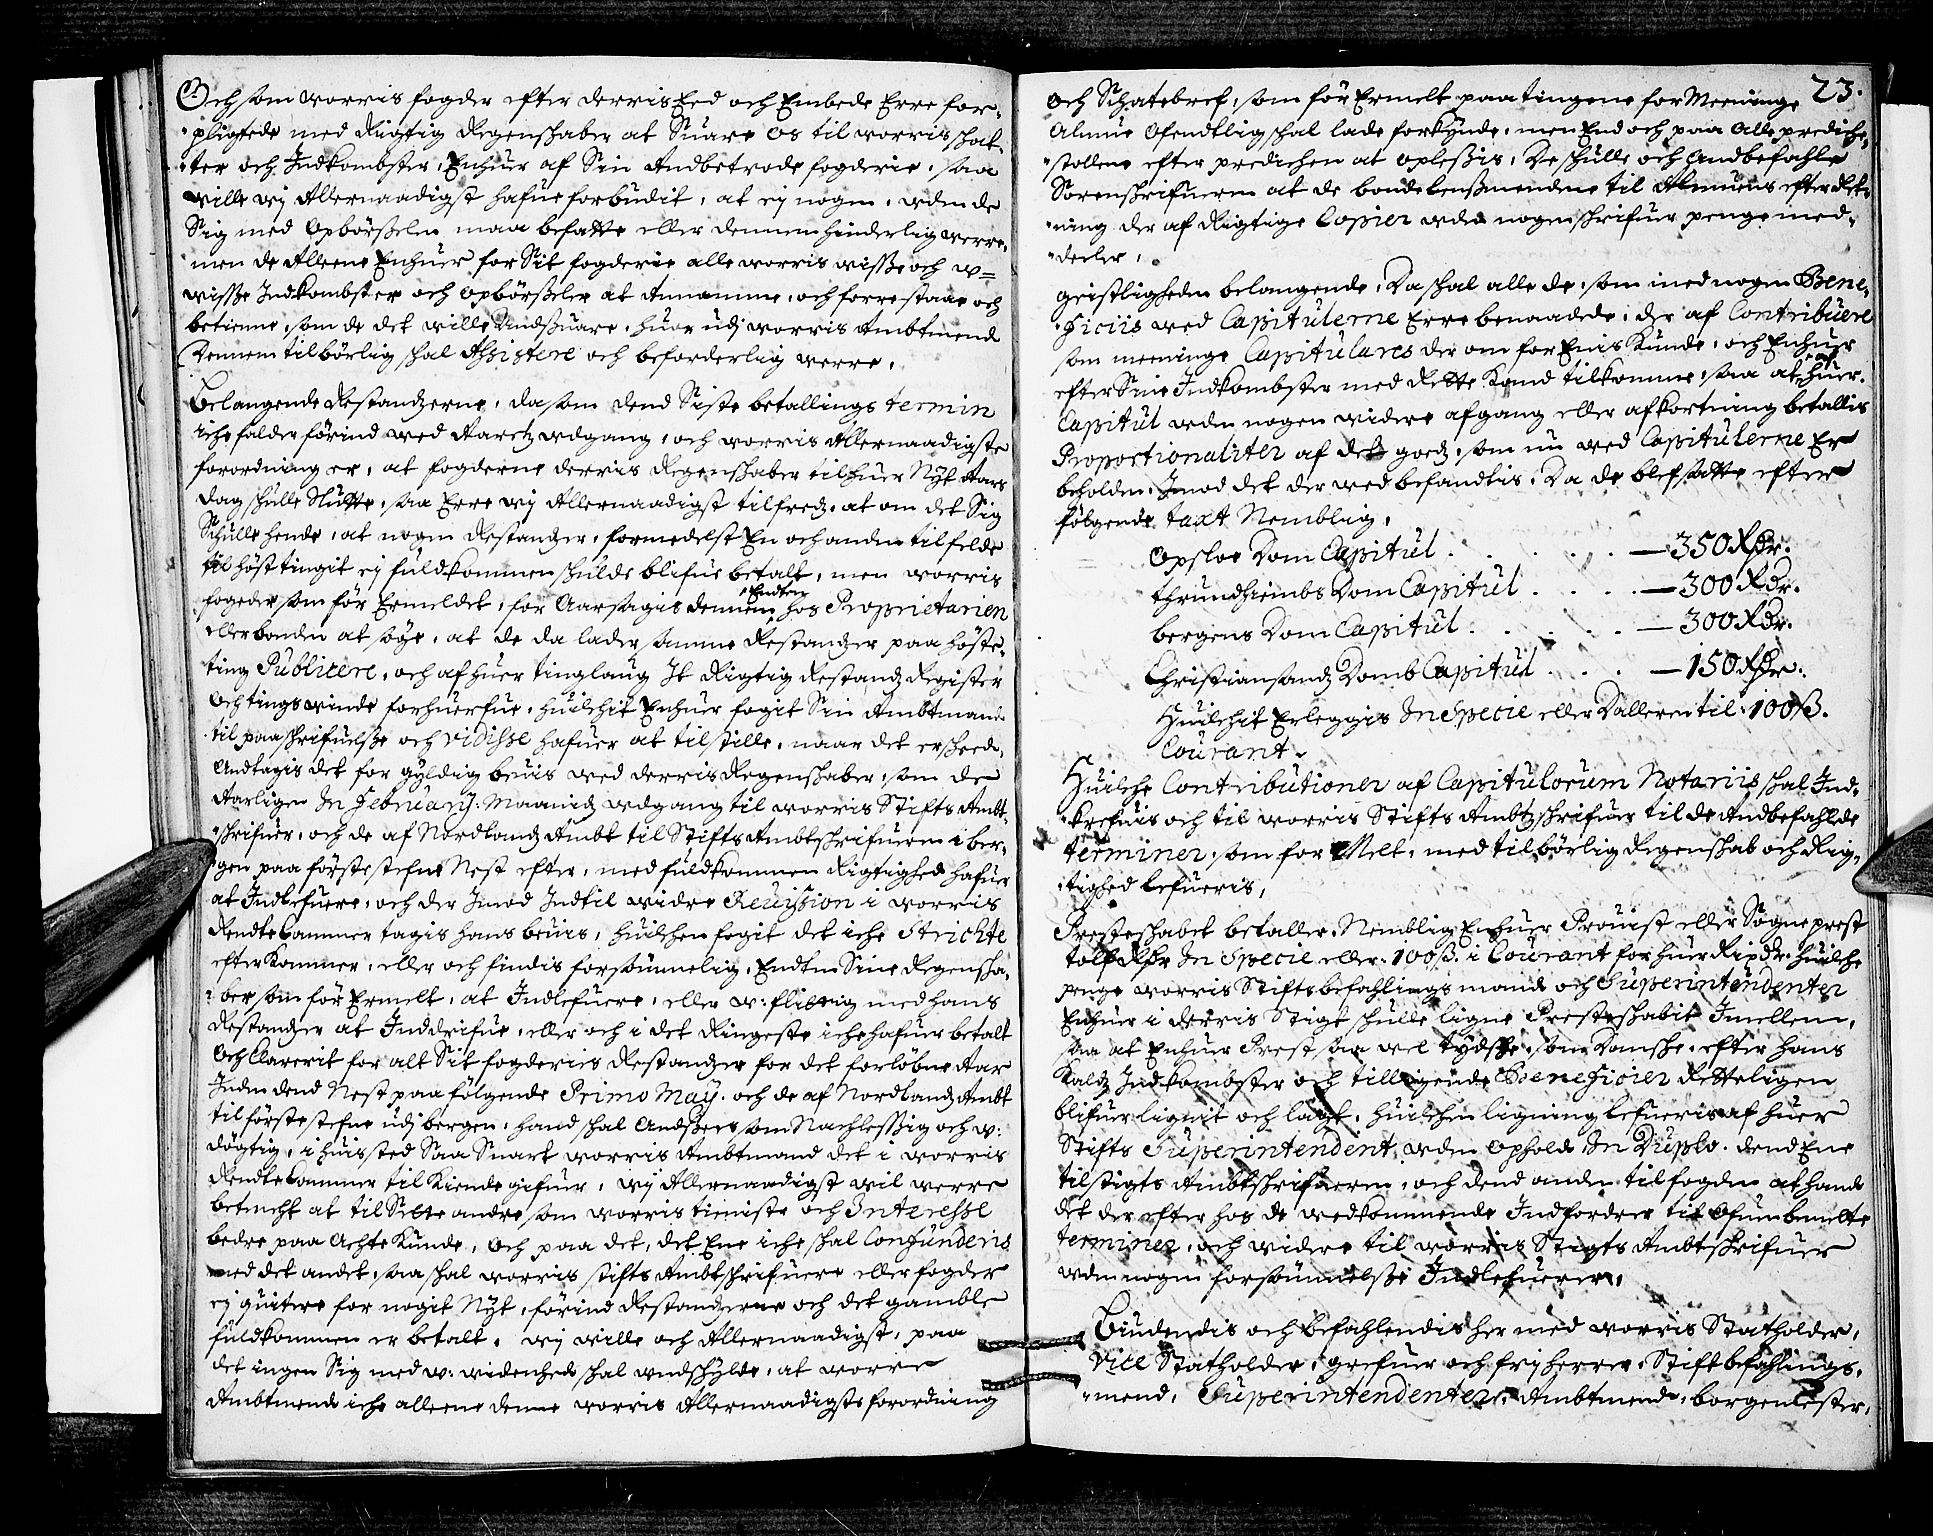 Och som worris fogder efter derris Eed och Embede Erre for-
pligtede med Rigtig Regenschaber at Suare Os til worris schat-
ter och Indkombster, Enhuer af Sin Andbetrode fogderie, saa
wille wij Allernaadigst hafue forbudit, at ej nogen, uden de
Sig med Opbörßelen maa befatte eller dennem hinderlig werre,
men de Alleene Enhuer for Sit fogderie alle worris wiße och w=
wiße Indkombster och Opbörßeler at Annamme, och forrestaae och
betienne, som de det wille Andsuare, huor udj worris Ambtmend
Dennem tilbörlig schal Assistere och beforderlig werre.
Belangende Restandzerne, da som dend Siste betallings termin
iche falder förind wed Aaretz udgang, och worris Allernaadigste
forordning er, at fogderne derris Regenschaber til huer Nyt Aars
dag schulle Slutte, saa Erre wij Allernaadigst tilfredz, at om det Sig
Schulle hende, at nogen Restandzer, formedelst En och anden tilfelde
til hösttingit ej fuldkommen schulde blifue betalt, men worris
fogeder som för Ermeldet, for Aarsagis dennem Endten hos Proprietarien
eller bonden at söge, at de da lader samme Restandzer paa höste-
ting Publicere, och af huer tinglaug It Rigtig Restandz Register
Och tingswinde forhuerfue, huilchit Enhuer fogit Sin Ambtmand
til paaschrifuelße och vidisse hafuer at tilstille, naar det er scheed,
Andtagis det for gyldig beuis wed derris Regenschaber, som de
Aarligen In February Maanidz udgang til worris Stifts Ambt-
schrifuer, och de af Nordlandz Ambt til Stifts Ambtschrifueren i ber-
gen paa förste stefne Nest efter, med fuldkommen Rigtighed hafuer
at Indlefuere, och der Imod Indtil widre Reuission i worris
Rendte Cammer tagis hans beuis, huilchen fogit det iche Strichte
efterkommer, eller och findis forsömmelig, Endten Sine Regenscha-
ber som för Ermelt, at Indlefuere, eller w:flittig med hans
Restandzer at Inddrifue, eller och i det Ringeste iche hafuer betalt
Och Clarerit for alt Sit fogderies Restandzer for det forlöbne Aar
Inden dend Nest paafölgende Primo May. och de af Nordlandz Ambt
til förste stefne udj bergen, hand schal Andsees som Nachlessig och w:
dögtig, i huis sted Saa Snart worris Ambtmand det i worris
Rendte Cammer til Kiende gifuer, wij Allernaadigst wil werre
betencht at til Sette andre som worris tieniste och Interesse
bedre paa Achte Kunde, Och paa det, det Ene iche schal Confunderis
med det andet, saa schal worris stifts Ambtschrifuere eller fogder
ej quitere for nogit Nyt, förind Restandzerne och det gamble
fuldkommen er betalt, wij wille och Allernaadigst, paa
det ingen Sig med w:widenhed schal undschylde, at worre
Ambtmend iche alleene denne worris Allernaadigste forordning
23.
Och Schatebref, som för Ermelt paa tingene for Meeninge
Almue Ofendtlig schal lade forkynde, men End och paa Alle prediche-
stollene efter predichen at opleßis, De schulle och Andbefahle
Sorenschrifueren at de bondelensmendene til Almuens efterret-
ning der af Rigtige Copier uden nogen schrifuer penge med-
deeler,
geistligheden belangende, Da schal alle de, som med nogen Bene-
ficiis wed Capitulerne Erre benaadede, der af Contribuere
som meeninge Capitulares der om forEenis Kunde, och Enhuer
efter Sine Indkombster med Rette Kand tilkomme, saa at af huer
Capitul uden nogen widere afgang eller afkortning betallis
Proportionaliter af det godz, som nu wed Capitulerne Er
beholden, Imod det der wed befandtis, Da de blef satte efter
fölgende taxt Nemblig,
Opsloe Dom Capitul . . . . . — 350 Rdr.
thrundhiembs Dom Capitul . . . . — 300 Rdr.
bergens Dom Capitul . . . . . — 300 Rdr.
Christiansandz Domb Capitul . . . — 150 Rdr.
Huilchit Erleggis In Specie eller Dalleren til 100 ß.
Courant.
Huilche Contributioner af Capitulorum Notariis schal Ind-
krefuis och til worris Stifts Ambtzschrifuer til de Andbefahlede
terminer, som for Melt, med tilbörlig Regenschab och Rig-
tighed lefueris,
Presteschabet betaller, Nemblig Enhuer Prouist eller Sogneprest
tolf Rdr In Specie eller 100 ß. i Courant for huer Ripdr. huilche
penge worris Stiftsbefahlings mand och Superintendenter
Enhuer i derris Stigt schulle ligne Presteschabit Imellem,
saa at Enhuer Prest saa wel tydsche som Dansche, efter hans
Kaldz Indkombster och tilligende Beneficier Retteligen
blifuer lignit och lagt, huilchen ligning lefueris af huer
Stifts Superintendent uden Ophold In Duplo, dend Ene
til stigts Ambtschrifueren, och dend anden til fogden at hand
det der efter hos de wedkommende Indfordrer til Ofuenbemelte
terminer, och widere til worris Stigts Ambtschrifuer
uden nogen forsömmelße Indlefuerer,
Biudendis och befahlendis her med worris Statholder,
Vice Statholder, grefuer och frij herrer, Stiftbefahlings-
mend, Superintendenter, Ambtmend, borgemester,